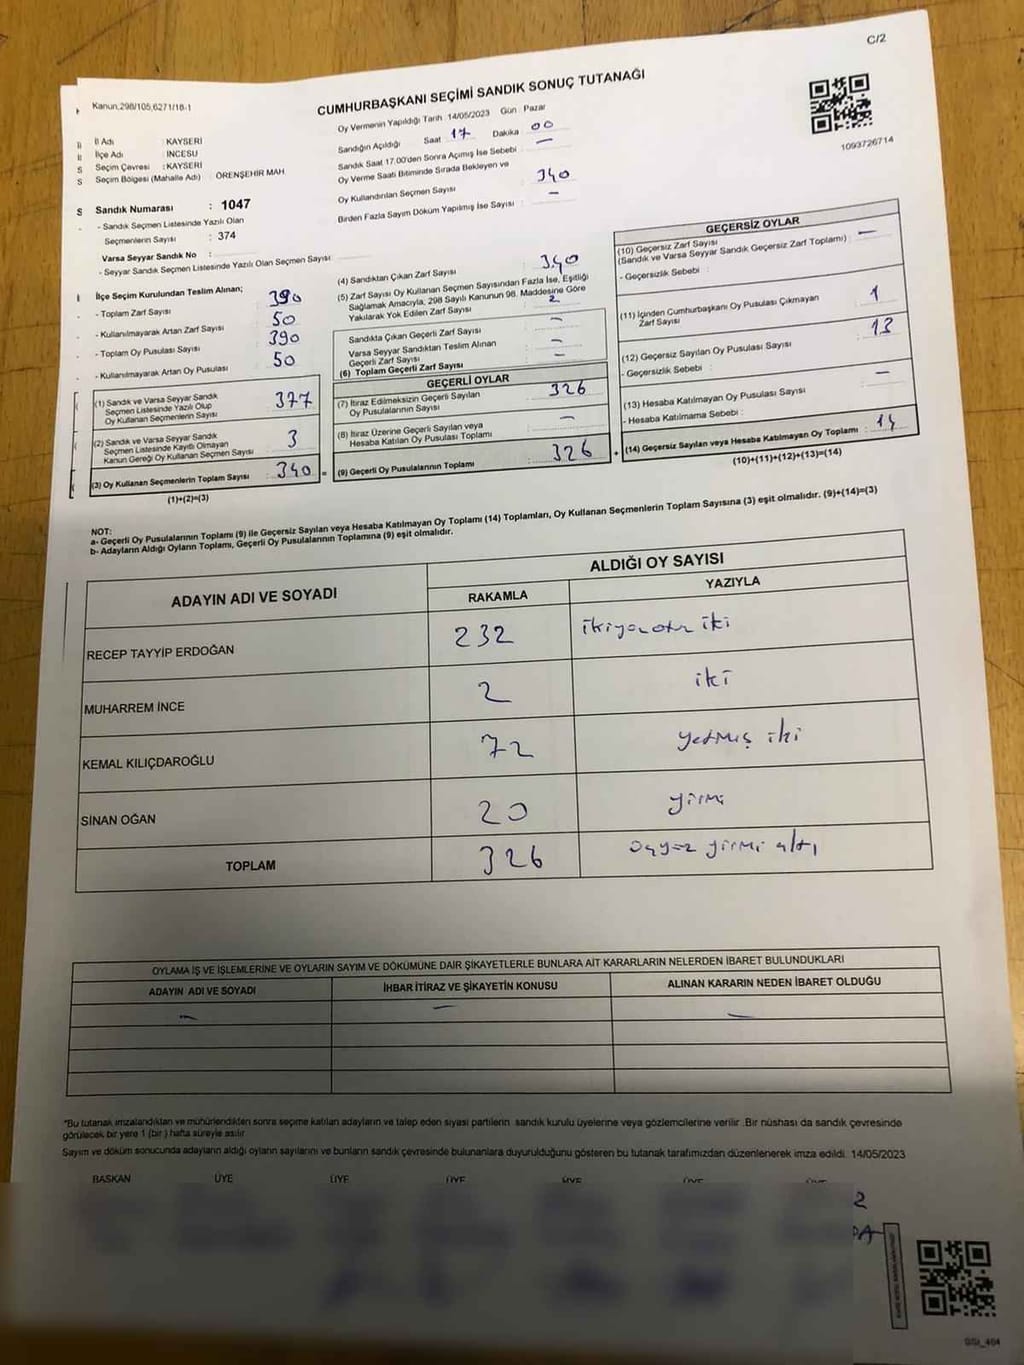 C/2
Kanun:298/105,6271/18-1
CUMHURBAŞKANI SEÇİMİ SANDIK SONUÇ TUTANAĞI
Oy Vermenin Yapıldığı Tarih 14/05/2023 Gün Pazar
İl Adı : KAYSERİ
İlçe Adı : İNCESU
Seçim Çevresi : KAYSERİ
Seçim Bölgesi (Mahalle Adı) : ÖRENŞEHİR MAH
Sandığın Açıldığı Saat 17 Dakika 00
Sandık Saat 17.00'den Sonra Açımış İse Sebebi : —
Oy Verme Saati Bitiminde Sırada Bekleyen ve
Oy Kullandırılan Seçmen Sayısı : 340
Birden Fazla Sayım Döküm Yapılmış İse Sayısı : —
1093726714
S Sandık Numarası : 1047
- Sandık Seçmen Listesinde Yazılı Olan
Seçmenlerin Sayısı : 374
Varsa Seyyar Sandık No :
- Seyyar Sandık Seçmen Listesinde Yazılı Olan Seçmen Sayısı:
İlçe Seçim Kurulundan Teslim Alınan;
- Toplam Zarf Sayısı : 390
- Kullanılmayarak Artan Zarf Sayısı : 50
- Toplam Oy Pusulası Sayısı : 390
- Kullanılmayarak Artan Oy Pusulası : 50
(1) Sandık ve Varsa Seyyar Sandık
Seçmen Listesinde Yazılı Olup
Oy Kullanan Seçmenlerin Sayısı : 377
(2) Sandık ve Varsa Seyyar Sandık
Seçmen Listesinde Kayıtlı Olmayan
Kanun Gereği Oy Kullanan Seçmen Sayısı : 3
(3) Oy Kullanan Seçmenlerin Toplam Sayısı : 340 =
(1)+(2)=(3)
(4) Sandıktan Çıkan Zarf Sayısı : 340
(5) Zarf Sayısı Oy Kullanan Seçmen Sayısından Fazla İse, Eşitliği
Sağlamak Amacıyla, 298 Sayılı Kanunun 98. Maddesine Göre
Yakılarak Yok Edilen Zarf Sayısı : 2
Sandıkta Çıkan Geçerli Zarf Sayısı : —
Varsa Seyyar Sandıktan Teslim Alınan
Geçerli Zarf Sayısı : —
(6) Toplam Geçerli Zarf Sayısı : —
GEÇERLİ OYLAR
(7) İtiraz Edilmeksizin Geçerli Sayılan
Oy Pusulalarının Sayısı : 326
(8) İtiraz Üzerine Geçerli Sayılan veya
Hesaba Katılan Oy Pusulası Toplamı : —
(9) Geçerli Oy Pusulalarının Toplamı : 326 +
GEÇERSİZ OYLAR
(10) Geçersiz Zarf Sayısı
(Sandık ve Varsa Seyyar Sandık Geçersiz Zarf Toplamı) : —
- Geçersizlik Sebebi :
(11) İçinden Cumhurbaşkanı Oy Pusulası Çıkmayan
Zarf Sayısı : 1
(12) Geçersiz Sayılan Oy Pusulası Sayısı : 13
- Geçersizlik Sebebi :
(13) Hesaba Katılmayan Oy Pusulası Sayısı : —
- Hesaba Katılmama Sebebi :
(14) Geçersiz Sayılan veya Hesaba Katılmayan Oy Toplamı : 14
(10)+(11)+(12)+(13)=(14)
NOT:
a- Geçerli Oy Pusulalarının Toplamı (9) ile Geçersiz Sayılan veya Hesaba Katılmayan Oy Toplamı (14) Toplamları, Oy Kullanan Seçmenlerin Toplam Sayısına (3) eşit olmalıdır. (9)+(14)=(3)
b- Adayların Aldığı Oyların Toplamı, Geçerli Oy Pusulalarının Toplamına (9) eşit olmalıdır.
ADAYIN ADI VE SOYADI ALDIĞI OY SAYISI
RAKAMLA YAZIYLA
RECEP TAYYİP ERDOĞAN 232 ikiyüzotuz iki
MUHARREM İNCE 2 iki
KEMAL KILIÇDAROĞLU 72 yetmiş iki
SİNAN OĞAN 20 yirmi
TOPLAM 326 üçyüz yirmi altı
OYLAMA İŞ VE İŞLEMLERİNE VE OYLARIN SAYIM VE DÖKÜMÜNE DAİR ŞİKAYETLERLE BUNLARA AİT KARARLARIN NELERDEN İBARET BULUNDUKLARI
ADAYIN ADI VE SOYADI İHBAR İTİRAZ VE ŞİKAYETİN KONUSU ALINAN KARARIN NEDEN İBARET OLDUĞU
— — —
*Bu tutanak imzalandıktan ve mühürlendikten sonra seçime katılan adayların ve talep eden siyasi partilerin sandık kurulu üyelerine veya gözlemcilerine verilir. Bir nüshası da sandık çevresinde
görülecek bir yere 1 (bir) hafta süreyle asılır.
Sayım ve döküm sonucunda adayların aldığı oyların sayılarını ve bunların sandık çevresinde bulunanlara duyurulduğunu gösteren bu tutanak tarafımızdan düzenlenerek imza edildi. 14/05/2023
BAŞKAN ÜYE ÜYE ÜYE ÜYE ÜYE ÜYE